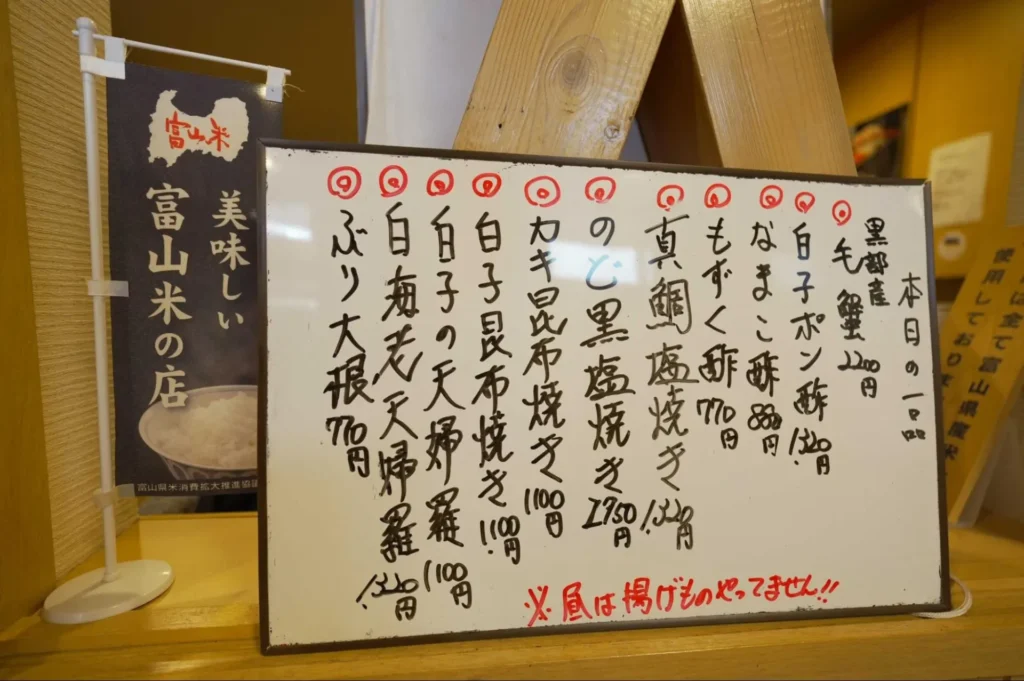 本日の一品
黒部産
毛蟹 2200円
白子ポン酢 1,320円
なまこ酢 880円
もずく酢 770円
真鯛塩焼き 1,320円
のど黒塩焼き 2,750円
カキ昆布焼き 1100円
白子昆布焼き 1,100円
白子の天婦羅 1100円
白海老天婦羅 1,320円
ぶり大根 770円
※昼は揚げものやってません!!
富山米
美味しい
富山米の店
富山県米消費拡大推進協議
は全て富山県産米
使用しており